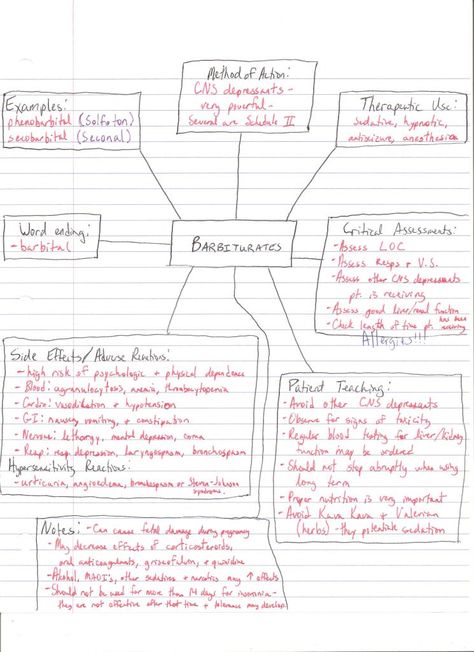 Method of Action:
CNS depressants -
very powerful -
Several are Schedule II
Examples:
phenobarbital (Solfoton)
secobarbital (Seconal)
Therapeutic Use:
sedative, hypnotic,
antiseizure, anesthesia
Word ending:
- barbital
BARBITURATES
Critical Assessments:
- Assess LOC
- Assess Resps + V.S.
- Assess other CNS depressants
pt. is receiving
- Assess good liver/renal function
- Check length of time pt. has been receiving
Allergies!!!
Side Effects/Adverse Reactions:
- high risk of psychologic + physical dependence
- Blood: agranulocytosis, anemia, thrombocytopenia
- Cardio: vasodilation + hypotension
- GI: nausea, vomiting, + constipation
- Nervous: lethargy, mental depression, coma
- Resp: resp. depression, laryngospasm, bronchospasm
Hypersensitivity Reactions:
- urticaria, angioedema, bronchospasm or Stevens-Johnson
syndrome.
Patient Teaching:
- Avoid other CNS depressants
- Observe for signs of toxicity
- Regular blood testing for liver/kidney
function may be ordered
- Should not stop abruptly when using
long term
- Proper nutrition is very important
- Avoid Kava Kava + Valerian
(herbs) - they potentiate sedation
Notes: - Can cause fetal damage during pregnancy
- May decrease effects of corticosteroids,
oral anticoagulants, griseofulvin, + quinidine
- Alcohol, MAOI's, other sedatives + narcotics may ↑ effects
- Should not be used for more than 14 days for insomnia -
they are not effective after that time + tolerance may develop.